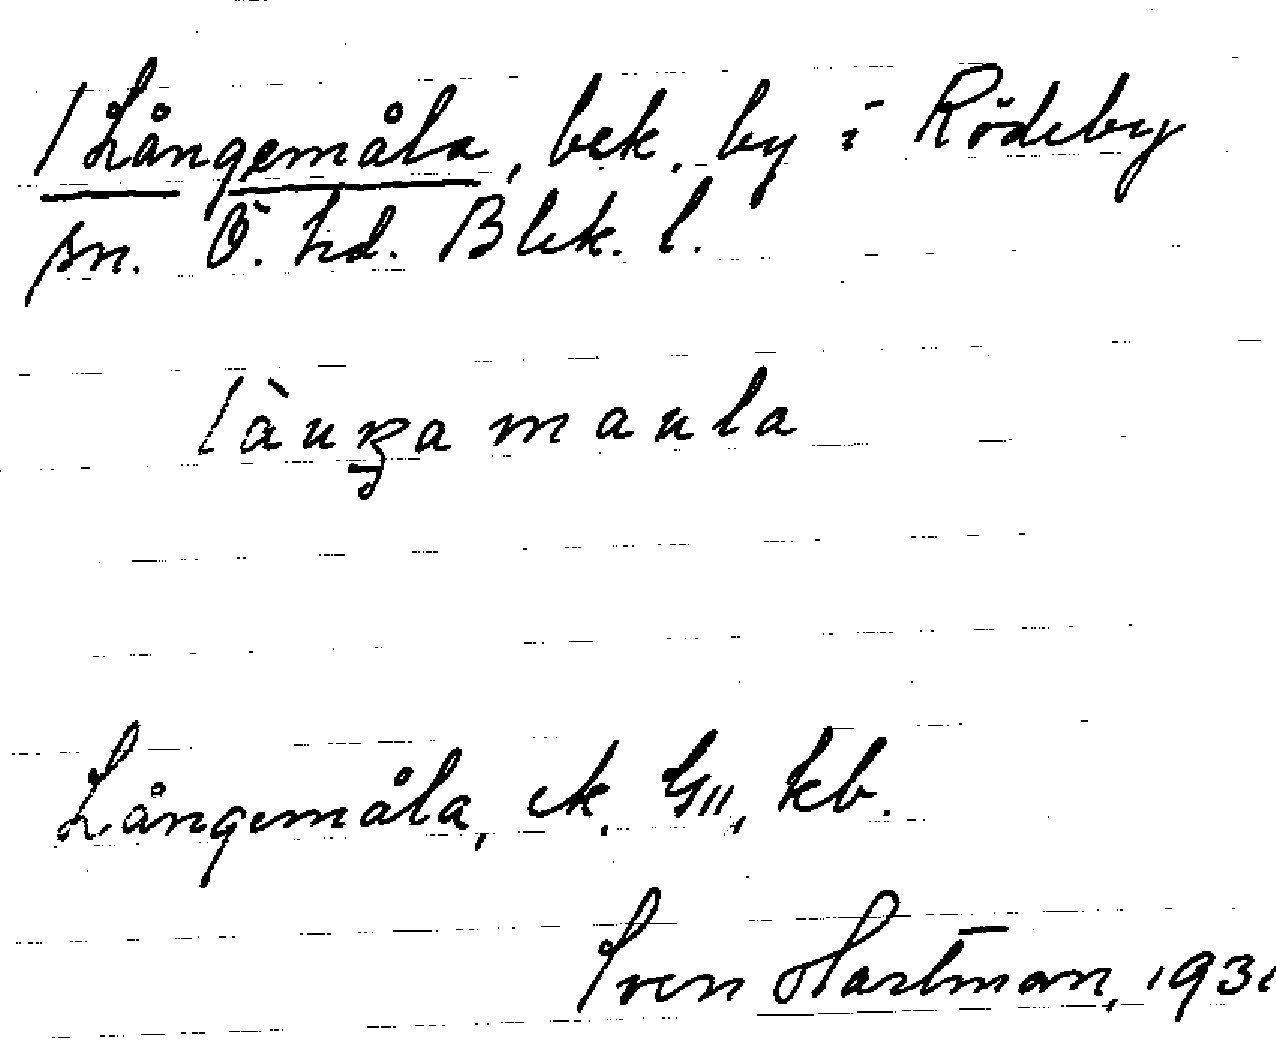 / Långemåla, bek. by i Rödeby
sn. Ö. hd. Blek. l.
làuŋa maula
Långemåla, ek. G11, kb.
Sven Hartman, 1931